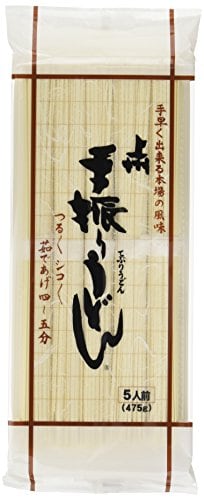 手早く出来る本場の風味
上州
手振りうどん
てぶりうどん
つる〱シコ〱
茹であげ四～五分
5人前
(475g)